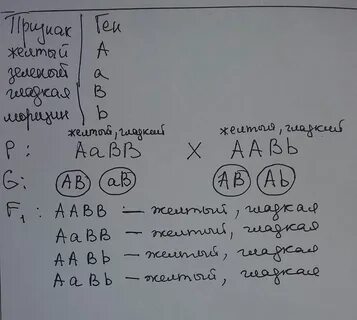 Признак Ген
желтый A
зеленый a
гладкая B
морщин b
желтый, гладкий желтый, гладкий
P: AaBB X AABb
G: AB aB AB Ab
F1: AABB — желтый, гладкая
AaBB — желтый, гладкая
AABb — желтый, гладкая
AaBb — желтый, гладкая